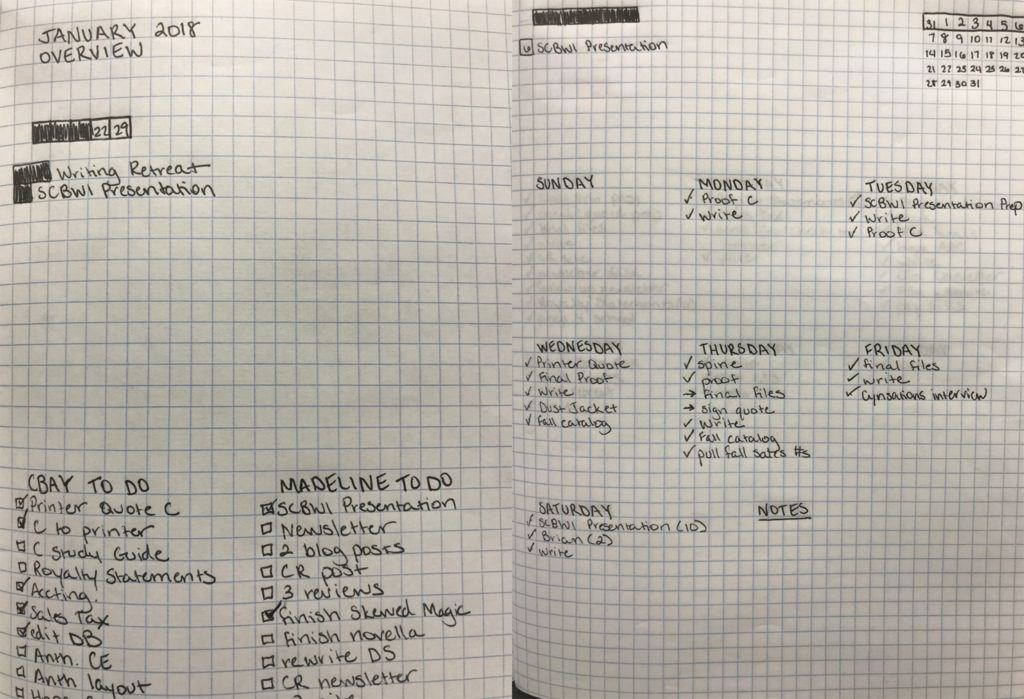 JANUARY 2018
OVERVIEW
22 29
Writing Retreat
SCBWI Presentation
CBAY TO DO
Printer Quote C
C to printer
C Study Guide
Royalty Statements
Accting.
Sales Tax
edit DB
Anth. CE
Anth layout
MADELINE TO DO
SCBWI Presentation
Newsletter
2 blog posts
CR post
3 reviews
Finish Skewed Magic
Finish novella
rewrite DS
CR newsletter
6 SCBWI Presentation
31 1 2 3 4 5 6
7 8 9 10 11 12 13
14 15 16 17 18 19 20
21 22 23 24 25 26 27
28 29 30 31
SUNDAY
MONDAY
✓ Proof C
✓ Write
TUESDAY
✓ SCBWI Presentation Prep
✓ Write
✓ Proof C
WEDNESDAY
✓ Printer Quote
✓ Final Proof
✓ Write
✓ Dust Jacket
✓ Fall catalog
THURSDAY
✓ spine
✓ proof
→ final files
→ sign quote
✓ Write
✓ Fall catalog
✓ pull fall sales #s
FRIDAY
✓ final files
✓ write
✓ Cynsations interview
SATURDAY
✓ SCBWI Presentation (10)
✓ Brian (2)
✓ Write
NOTES